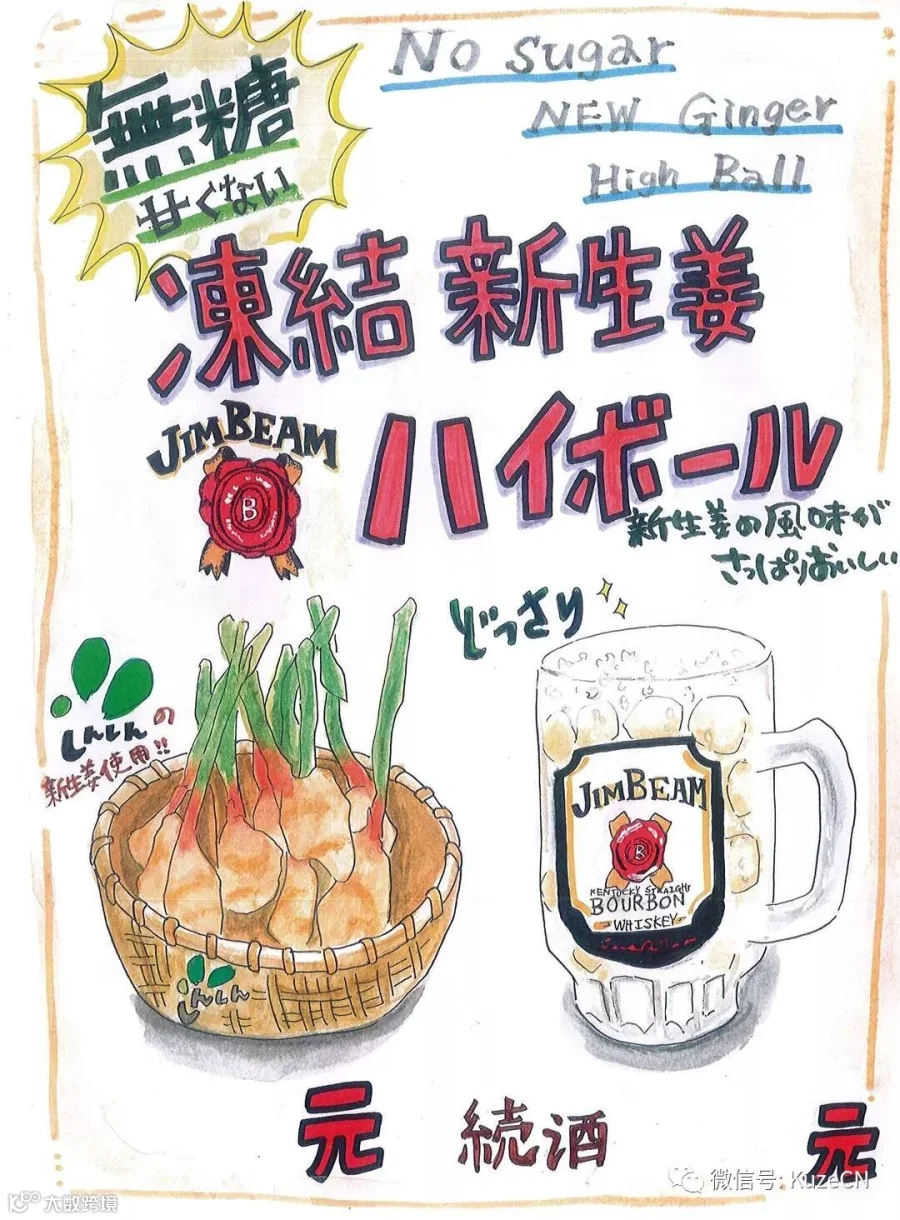 無糖
甘くない
No Sugar
NEW Ginger
High Ball
凍結 新生姜
JIM BEAM
B
ハイボール
新生姜の風味が
さっぱりおいしい
どっさり
しんしんの
新生姜使用!!
しんしん
JIM BEAM
B
KENTUCKY STRAIGHT
BOURBON
WHISKEY
元 続酒 元
微信号: KuzeCN
大数跨境